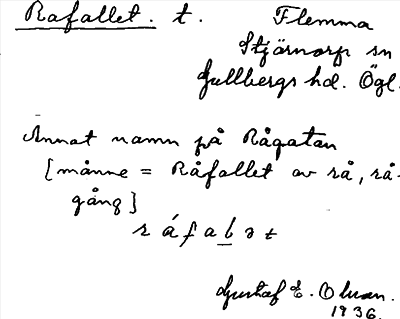 Rafallet. t. Flemma
Stjärnorp sn
Gullbergs hd. Ögl.
Annat namn på Rågatan
[månne = Råfallet av rå, rå-
gång]
ráfalət
Gustaf E. Olman.
1936.